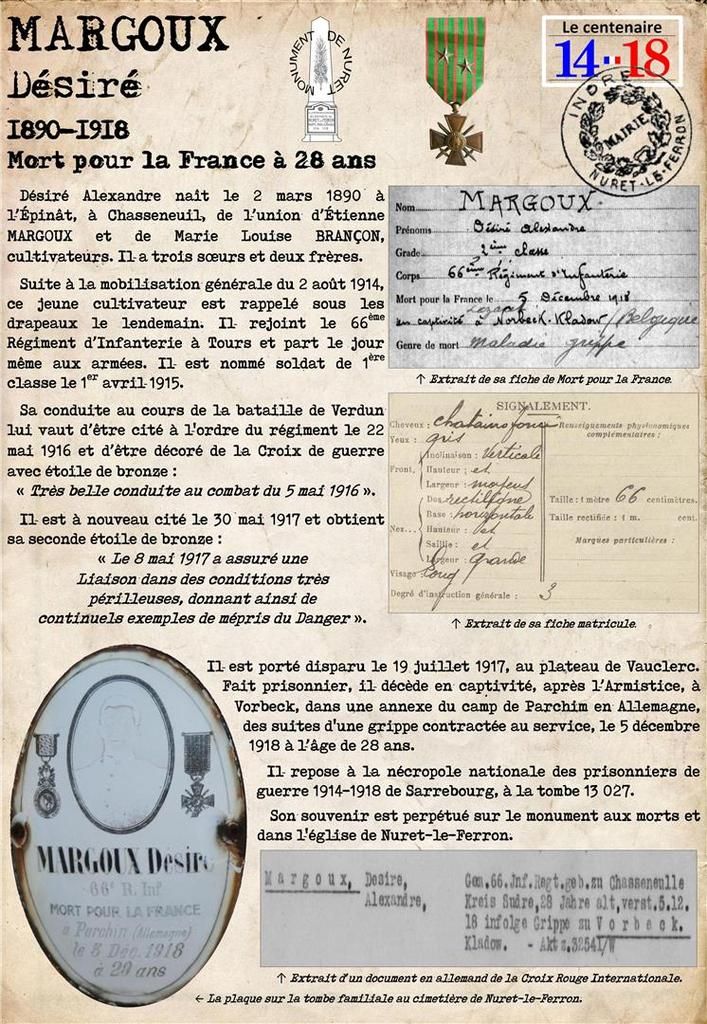 MARGOUX
Désiré
1890-1918
Mort pour la France à 28 ans
MONUMENT DE NURET
Le centenaire
14..18
INDRE
MAIRIE
NURET-LE-FERRON
Désiré Alexandre naît le 2 mars 1890 à
l'Épinât, à Chasseneuil, de l'union d'Étienne
MARGOUX et de Marie Louise BRANÇON,
cultivateurs. Il a trois sœurs et deux frères.
Suite à la mobilisation générale du 2 août 1914,
ce jeune cultivateur est rappelé sous les
drapeaux le lendemain. Il rejoint le 66ème
Régiment d'Infanterie à Tours et part le jour
même aux armées. Il est nommé soldat de 1ère
classe le 1er avril 1915.
Sa conduite au cours de la bataille de Verdun
lui vaut d'être cité à l'ordre du régiment le 22
mai 1916 et d'être décoré de la Croix de guerre
avec étoile de bronze :
« Très belle conduite au combat du 5 mai 1916 ».
Il est à nouveau cité le 30 mai 1917 et obtient
sa seconde étoile de bronze :
« Le 8 mai 1917 a assuré une
Liaison dans des conditions très
périlleuses, donnant ainsi de
continuels exemples de mépris du Danger ».
Nom MARGOUX
Prénoms Désiré Alexandre
Grade 2ème classe
Corps 66ème Régiment d'Infanterie
Mort pour la France le 5 Décembre 1918
en captivité à Norbeck-Kladow/Belgique
Genre de mort maladie grippe
↑ Extrait de sa fiche de Mort pour la France.
SIGNALEMENT.
Cheveux : chatains foncé
Renseignements physionomiques
complémentaires :
Yeux : gris
Front. Inclinaison : verticale
Hauteur : et
Largeur : moyens
Nez... Dos rectiligne
Taille : 1 mètre 66 centimètres.
Base : horizontale
Taille rectifiée : 1 m. cent.
Hauteur :
Saillie : et
Marques particulières :
Largeur : grande
Visage : long
Degré d'instruction générale : 3
↑ Extrait de sa fiche matricule.
Il est porté disparu le 19 juillet 1917, au plateau de Vauclerc.
Fait prisonnier, il décède en captivité, après l'Armistice, à
Vorbeck, dans une annexe du camp de Parchim en Allemagne,
des suites d'une grippe contractée au service, le 5 décembre
1918 à l'âge de 28 ans.
Il repose à la nécropole nationale des prisonniers de
guerre 1914-1918 de Sarrebourg, à la tombe 13 027.
Son souvenir est perpétué sur le monument aux morts et
dans l'église de Nuret-le-Ferron.
MARGOUX Désiré
66e R. Inf
MORT POUR LA FRANCE
a Parchin (Allemagne)
le 8 Déc. 1918
à 29 ans
Margoux, Desire, Gem.66.Jnf.Regt.geb.zu Chasseneulle
Alexandre, Kreis Sudre,28 Jahre alt,verst.5.12.
18 infolge Grippe zu Vorbeck.
Kladow. - Aktz.32541/W
↑ Extrait d'un document en allemand de la Croix Rouge Internationale.
← La plaque sur la tombe familiale au cimetière de Nuret-le-Ferron.